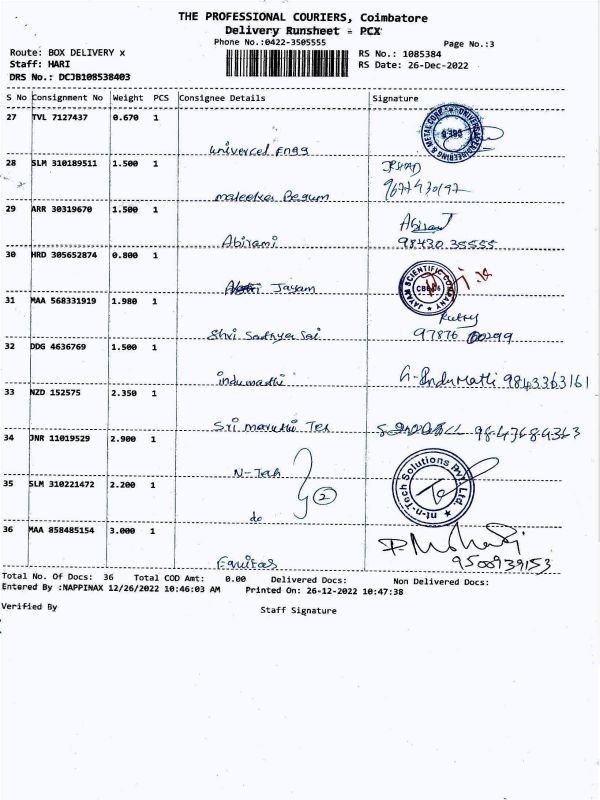 THE PROFESSIONAL COURIERS, Coimbatore
Delivery Runsheet - PCX
Phone No.:0422-3505555
Page No.:3
Route: BOX DELIVERY x
RS No.: 1085384
Staff: HARI
RS Date: 26-Dec-2022
DRS No.: DCJB108538403
S No Consignment No Weight PCS Consignee Details Signature
27 TVL 7127437 0.670 1
univercel Engg
28 SLM 310189511 1.500 1
maleeka Begum
29 ARR 30319670 1.500 1
Abirami 98430 35555
30 HRD 305652874 0.800 1
Jayam
JAYAM SCIENTIFIC COMPANY
31 MAA 568331919 1.980 1
Shri Sathya Sai 97876
32 DDG 4636769 1.500 1
indumathi G. InduMathi 9843363161
33 NZD 152575 2.350 1
Sri maruthi Tex
34 JNR 11019529 2.900 1
N-Tech
nt-n-Tech Solutions Pvt. Ltd.
35 SLM 310221472 2.200 1
do 2
36 MAA 858485154 3.000 1
Equitas 9500939153
Total No. Of Docs: 36 Total COD Amt: 0.00 Delivered Docs: Non Delivered Docs:
Entared By :NAPPINAX 12/26/2022 10:46:03 AM Printed On: 26-12-2022 10:47:38
Verified By Staff Signature